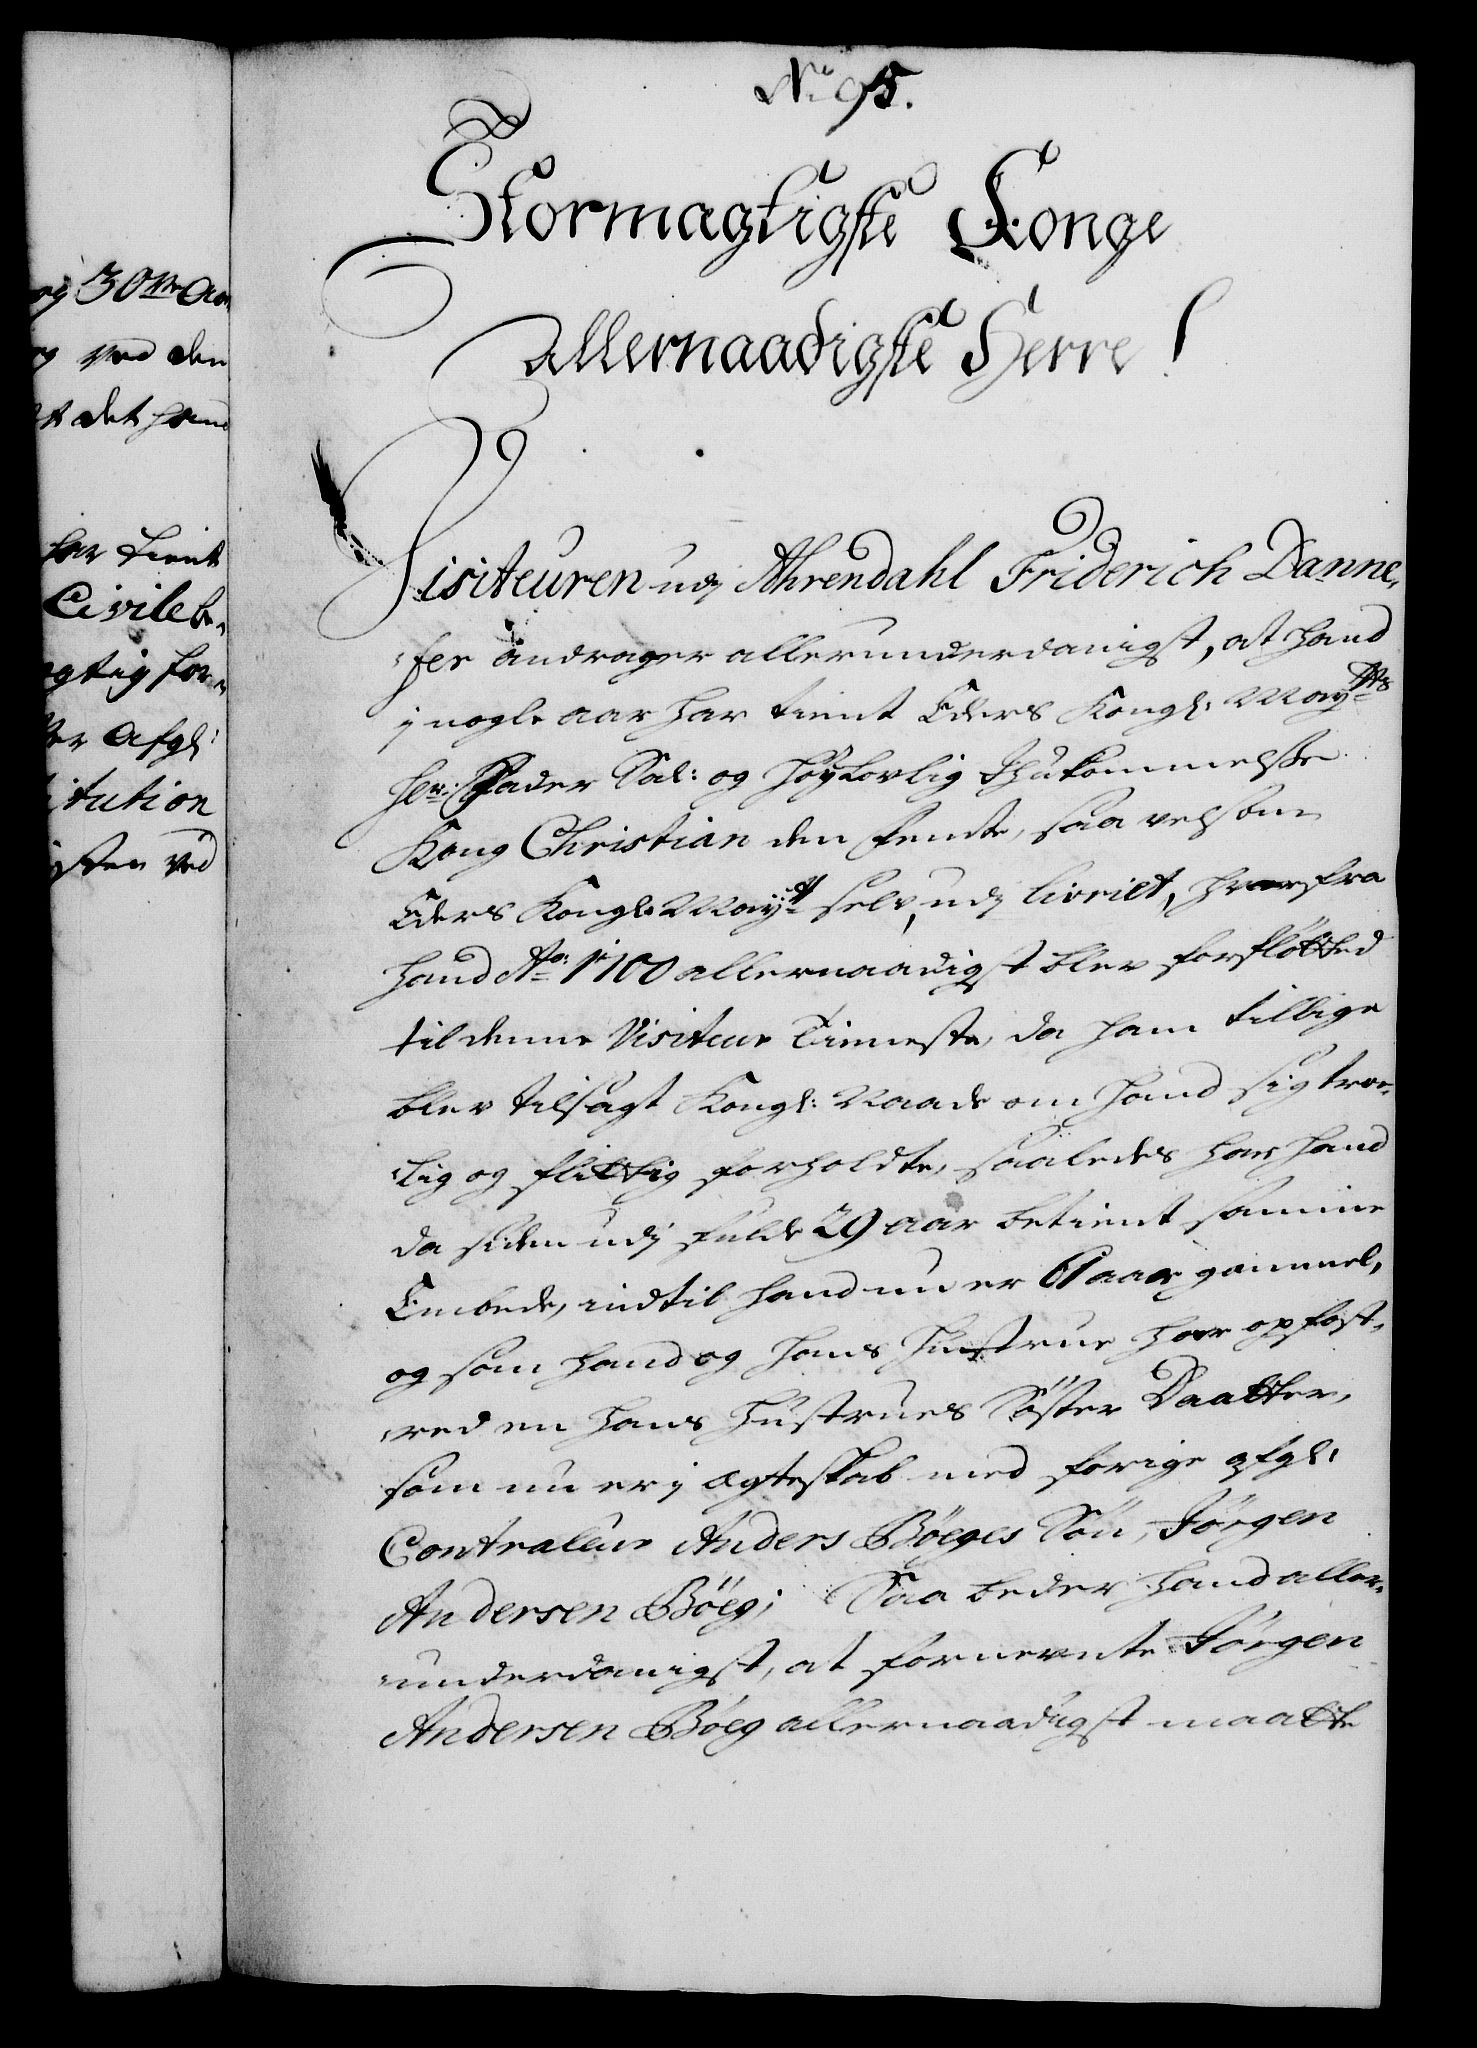 No 95.
Stormagtigste Konge
allernaadigste Herre!
Visiteuren udj Ahrendahl Friderich Danne,
,fer andrager allerunderdanigst, at hand
j nogle aar har tient Eders Kongl: Mayts
Hr: Fader Sal: og høylovlig Ihukommelse
Kong Christian den femte, saa vel som
Eders Kongl. Mayt selv, udj livriet, hvorfra
hand Ao: 1700 allernaadigst blev forfløtted
til denne Visiteur Tieneste, da ham tillige
blev tilsagt Kongl: Naade om hand sig troe,
,lig og flittig forholdte, saaledes har hand
da siden udj fulde 29 aar betient samme
Embede, indtil hand nu er 61 aar gammel,
og som hand og hans Hustrue har opfost,
,red en hans Hustrues Søster Daatter,
som nu er j ægteskab med forige afgl:
Contraleur Anders Bøeges Søn, Jørgen
Andersen Bøeg; Saa beder hand aller,
,underdanigst, at fornevnte Jørgen
Andersen Bøeg allernaadigst maatte
og 30te Aar
og ved den
at det hand
har tient
Civile b,
gtig for,
afgl:
itution
ved